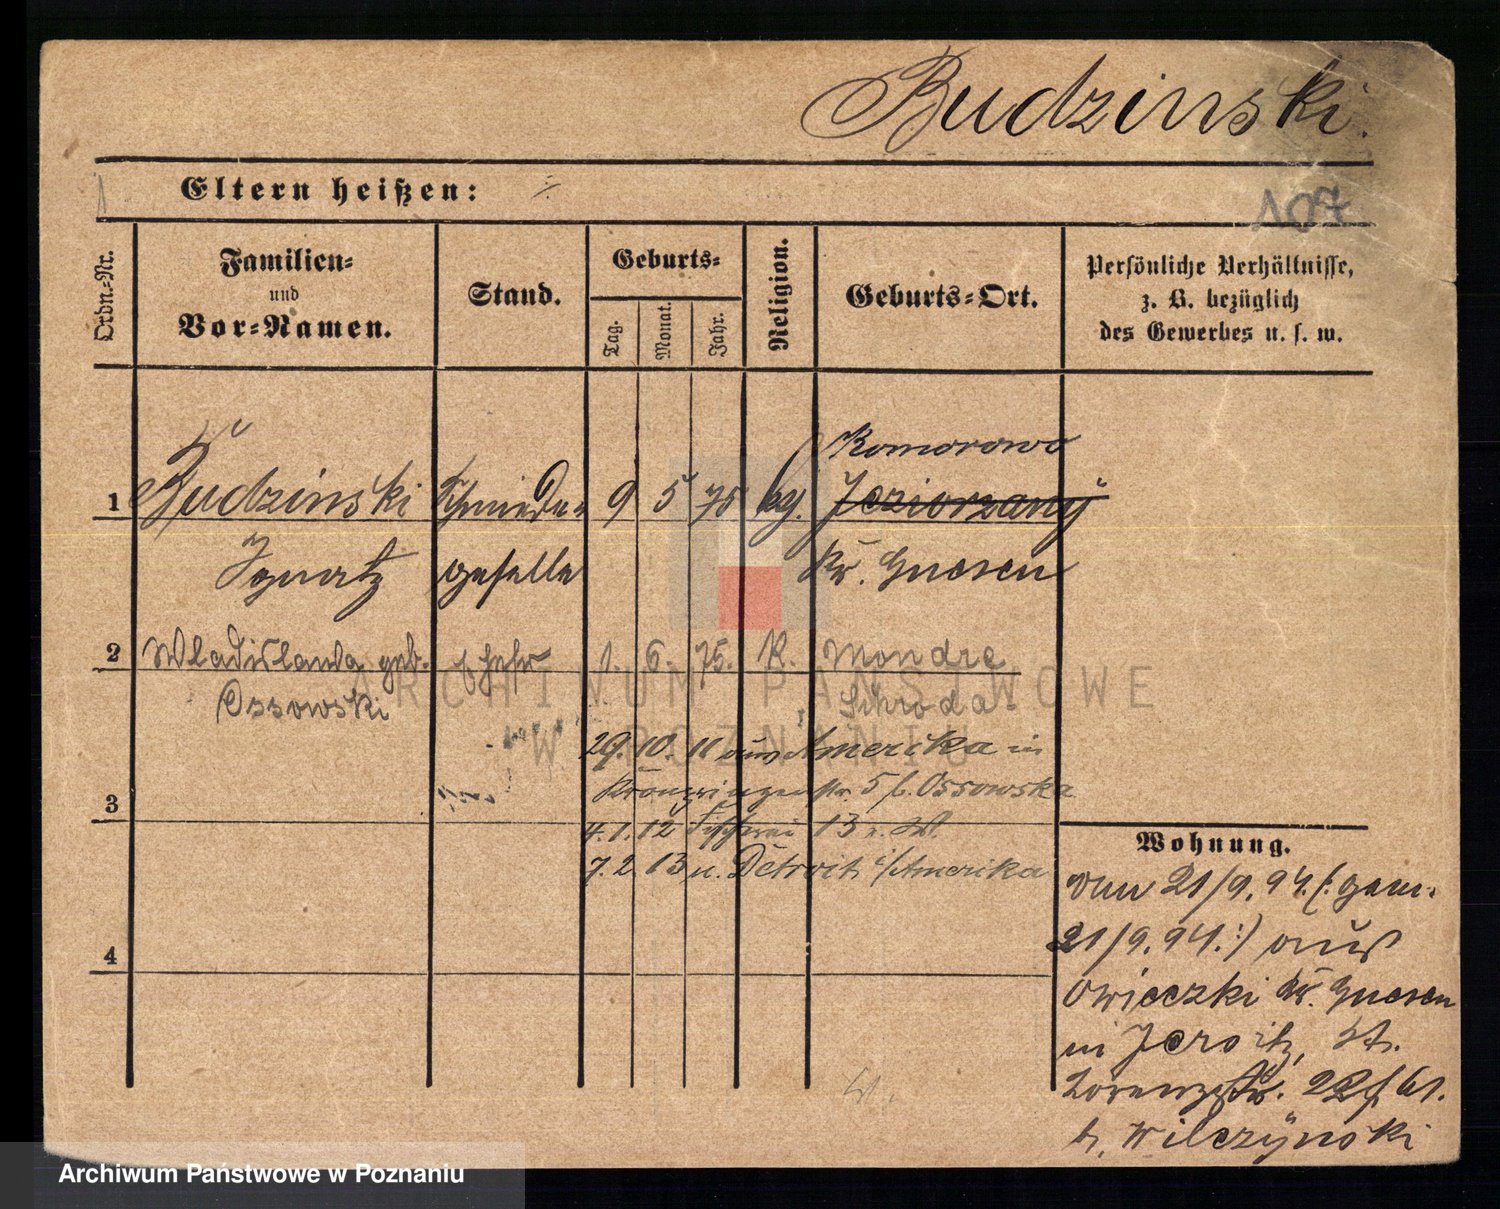 Budzinski.
Eltern heißen:
107
Ordn.-Nr.
Familien-
und
Vor-Namen.
Stand.
Geburts-
Tag.
Monat.
Jahr.
Religion.
Geburts-Ort.
Persönliche Verhältnisse,
z. B. bezüglich
des Gewerbes u. s. w.
Komorowo
1 Budzinski Schmiede- 9 5 75 Jeziorzany
Ignatz geselle Kr. Gnesen
2 Wladislawa geb. Ehefr 1. 6. 75. K. Mondre
Ossowski Schroda
29. 10. 11 aus Amerika in
3 Kronprinzenstr. 5 b. Ossowska
4. 1. 12 Fischerei 13 n. W.
7. 2. 13 n. Detroit i/Amerika
4
Wohnung.
Vom 21/9. 94. (: gem.
21/9. 94. :) aus
Owieczki Kr. Gnesen
in Jersitz, St.
Lorenzstr. 22
b. Wilczynski
ARCHIWUM PAŃSTWOWE
W POZNANIU
Archiwum Państwowe w Poznaniu